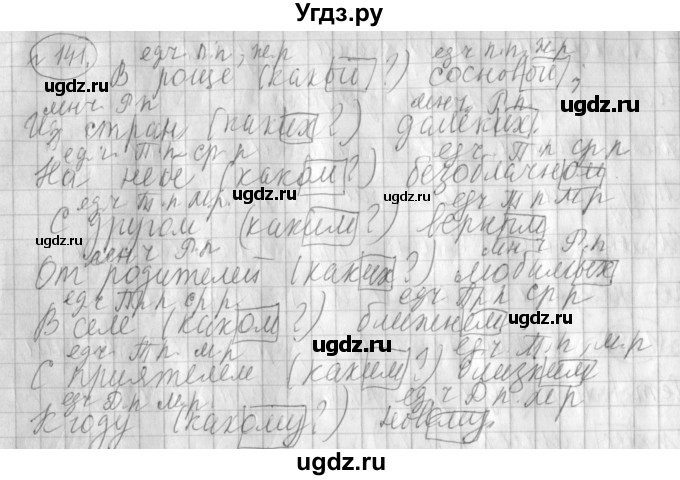 Угдз.ру
n 141.
едч Дп, жр едч пп, жр
В роще (какой?) сосновой,
мнч Рп мнч Рп
Из стран (каких?) далёких.
едч Пп ср р едч Пп ср р
На небе (каком?) безоблачном.
едч Тп м.р едч Тп м р
С другом (каким?) верным
мнч Рп мнч Рп
От родителей (каких?) любимых
едч Прп ср р едч Прп ср р
В селе (каком?) ближнем
едч Тп м р едч Тп, м.р
С приятелем (каким?) близким
едч Дп м р едч Дп м р
К году (какому?) новому.
ugdz.ru
ugdz.ru
ugdz.ru
ugdz.ru
ugdz.ru
ugdz.ru
ugdz.ru
ugdz.ru
ugdz.ru
ugdz.ru
ugdz.ru
ugdz.ru
ugdz.ru